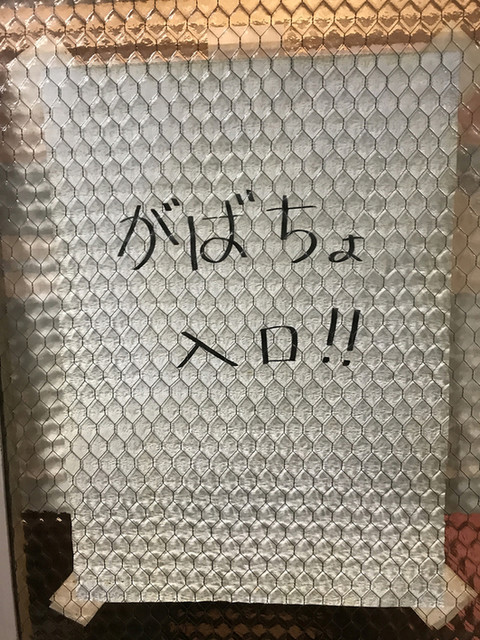 がばちょ
入口!!